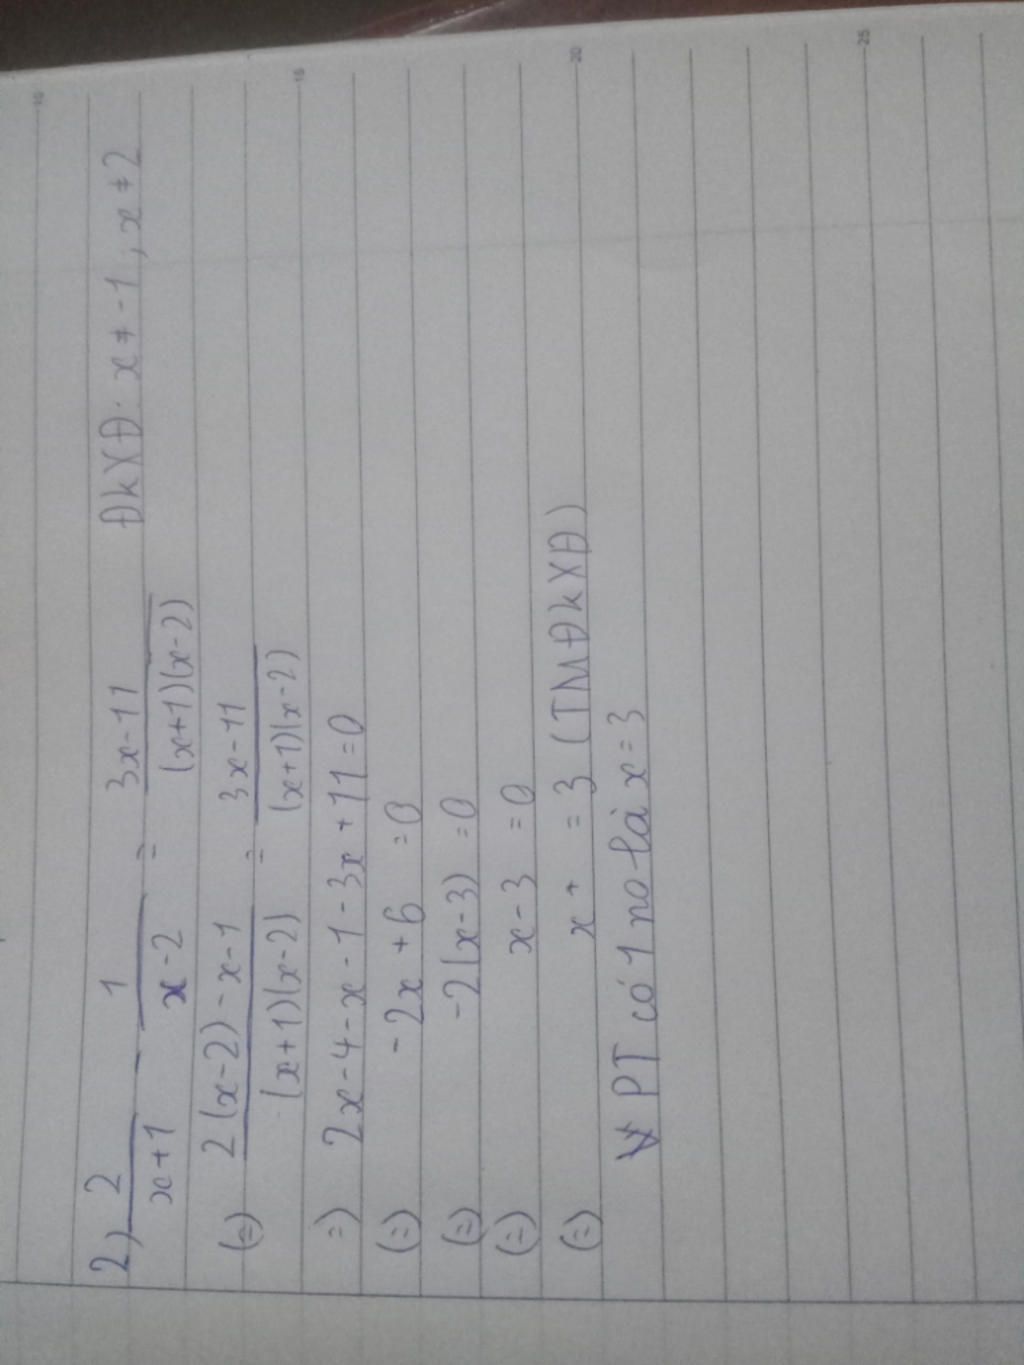 2) 2/(x+1) - 1/(x-2) = (3x-11)/((x+1)(x-2)) ĐKXĐ: x ≠ -1, x ≠ 2
(=) (2(x-2) - x-1)/((x+1)(x-2)) = (3x-11)/((x+1)(x-2))
=) 2x-4-x-1-3x+11=0
(=) -2x+6 =0
(=) -2(x-3) =0
(=) x-3 =0
(=) x = 3 (TMĐKXĐ)
PT có 1 no là x=3
10
15
20
25